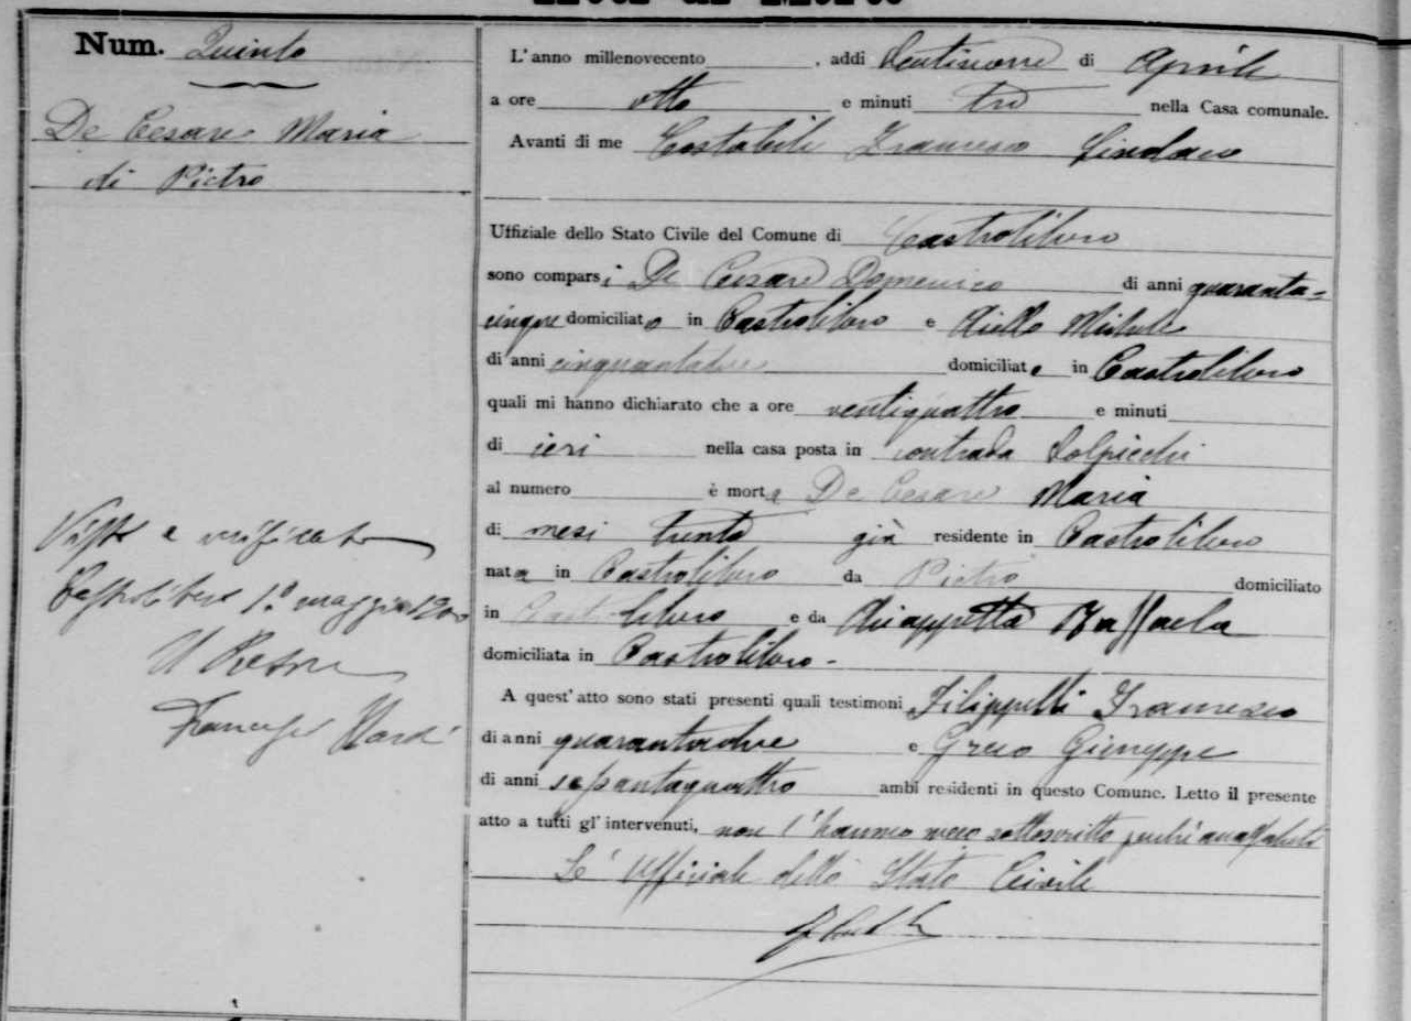 Atti di Morte
Num. Quinto
De Cesare Maria
di Pietro
Visto e verificato
Castrolibero 1.° maggio 1900
Il Pretore
L'anno millenovecento , addì Ventinove di Aprile
a ore otto e minuti tre nella Casa comunale.
Avanti di me Costabile Francesco Sindaco
Uffiziale dello Stato Civile del Comune di Castrolibero
sono comparsi De Cesare Domenico di anni quaranta=
cinque domiciliato in Castrolibero e Aiello Michele
di anni cinquantadue domiciliato in Castrolibero
quali mi hanno dichiarato che a ore ventiquattro e minuti
di ieri nella casa posta in contrada
al numero è morta De Cesare Maria
di mesi trenta già residente in Castrolibero
nata in Castrolibero da Pietro domiciliato
in Castrolibero e da Chiappetta Raffaela
domiciliata in Castrolibero -
A quest'atto sono stati presenti quali testimoni Filippelli Francesco
di anni quarantadue e Greco Giuseppe
di anni settantaquattro ambi residenti in questo Comune. Letto il presente
atto a tutti gl'intervenuti, non l'hanno meco sottoscritto perchè analfabeti
L'Ufficiale dello Stato Civile